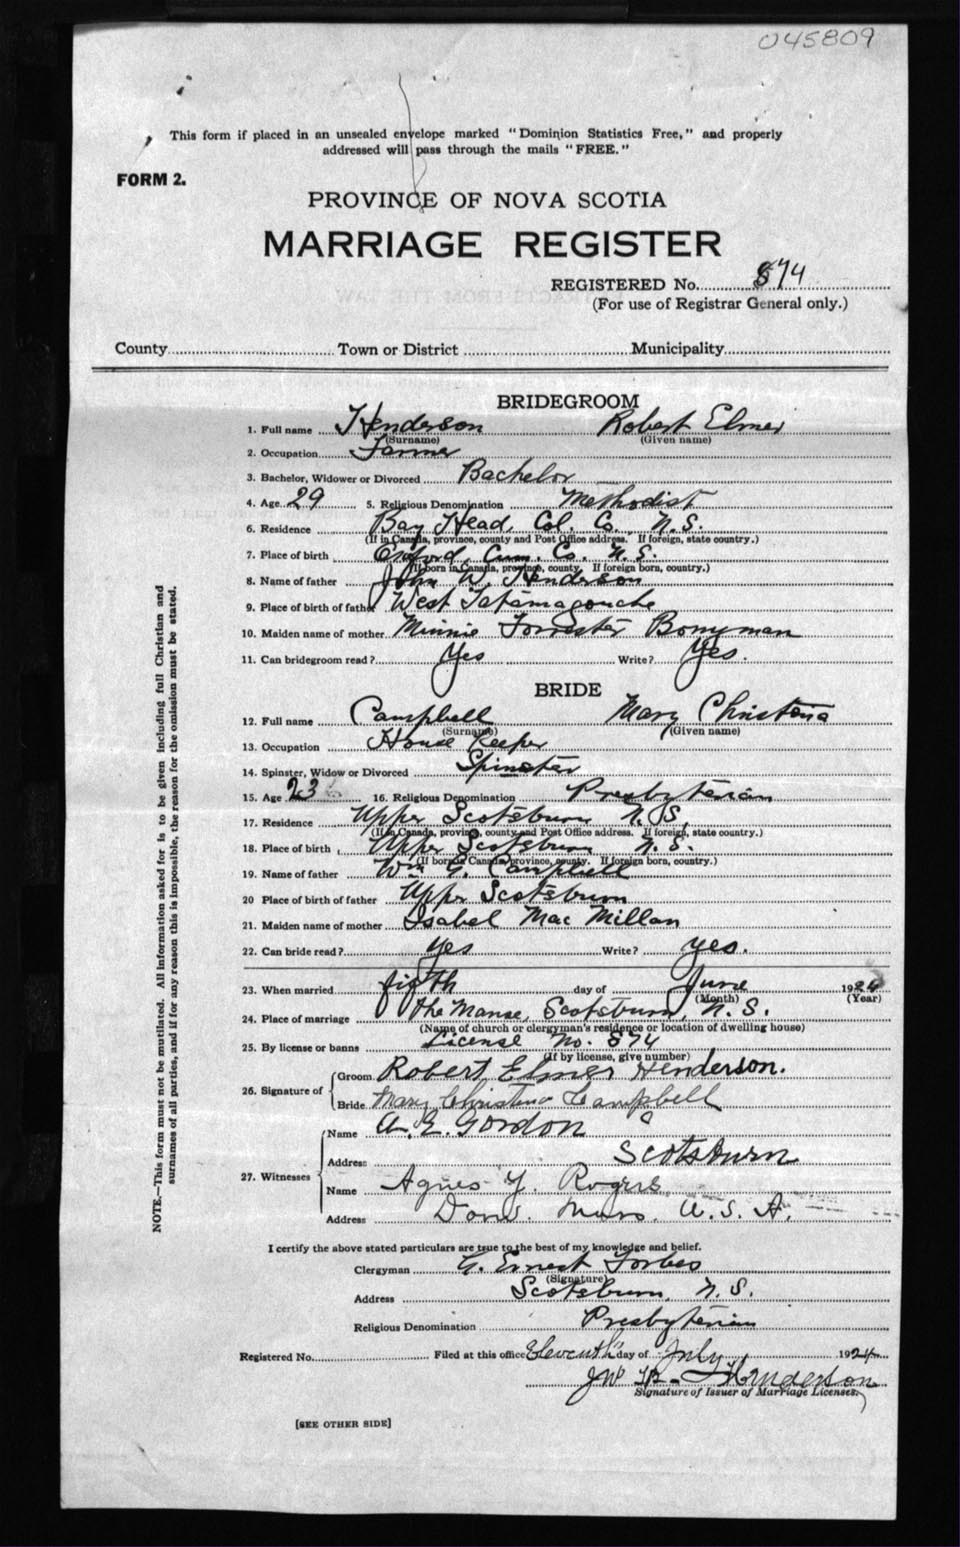 045809
This form if placed in an unsealed envelope marked "Dominion Statistics Free," and properly
addressed will pass through the mails "FREE."
FORM 2.
PROVINCE OF NOVA SCOTIA
MARRIAGE REGISTER
REGISTERED No. 874
(For use of Registrar General only.)
County Town or District Municipality
BRIDEGROOM
1. Full name Henderson Robert Elmer
(Surname) (Given name)
2. Occupation Farmer
3. Bachelor, Widower or Divorced Bachelor
4. Age 29 5. Religious Denomination Methodist
6. Residence Bay Head, Col. Co. N.S.
(If in Canada, province, county and Post Office address. If foreign, state country.)
7. Place of birth Oxford, Cum. Co. N.S.
(If born in Canada, province, county. If foreign born, country.)
8. Name of father John W. Henderson
9. Place of birth of father West Tatamagouche
10. Maiden name of mother Minnie Forrester Bonyman
11. Can bridegroom read? Yes Write? Yes.
BRIDE
12. Full name Campbell Mary Christena
(Surname) (Given name)
13. Occupation House Keeper
14. Spinster, Widow or Divorced Spinster
15. Age 23 16. Religious Denomination Presbyterian
17. Residence Upper Scotsburn N.S.
(If in Canada, province, county and Post Office address. If foreign, state country.)
18. Place of birth Upper Scotsburn N.S.
(If born in Canada, province, county. If foreign born, country.)
19. Name of father Wm G. Campbell
20 Place of birth of father Upper Scotsburn
21. Maiden name of mother Isabel MacMillan
22. Can bride read? yes Write? yes.
23. When married fifth day of June 1924
(Month) (Year)
24. Place of marriage the Manse, Scotsburn, N.S.
(Name of church or clergyman's residence or location of dwelling house)
25. By license or banns License No. 874
(If by license, give number)
26. Signature of Groom Robert Elmer Henderson.
Bride Mary Christena Campbell
27. Witnesses Name A. E. Gordon
Address Scotsburn
Name Agnes Y. Rogers
Address Mass. U.S.A.
I certify the above stated particulars are true to the best of my knowledge and belief.
Clergyman G. Ernest Forbes
(Signature)
Address Scotsburn, N.S.
Religious Denomination Presbyterian
Registered No. Filed at this office Eleventh day of July 1924
Henderson
Signature of Issuer of Marriage Licenses.
[SEE OTHER SIDE]
NOTE.—This form must not be mutilated. All information asked for is to be given including full Christian and
surnames of all parties, and if for any reason this is impossible, the reason for the omission must be stated.